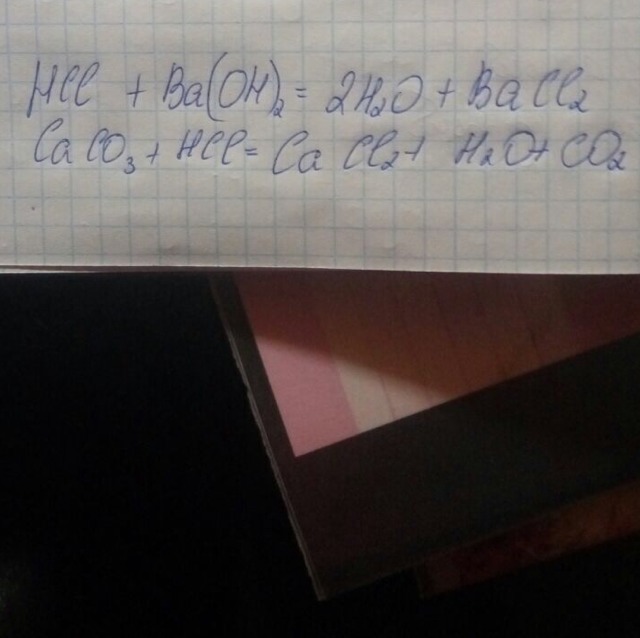 HCl + Ba(OH)₂ = 2H₂O + BaCl₂
CaCO₃ + HCl = CaCl₂ + H₂O + CO₂